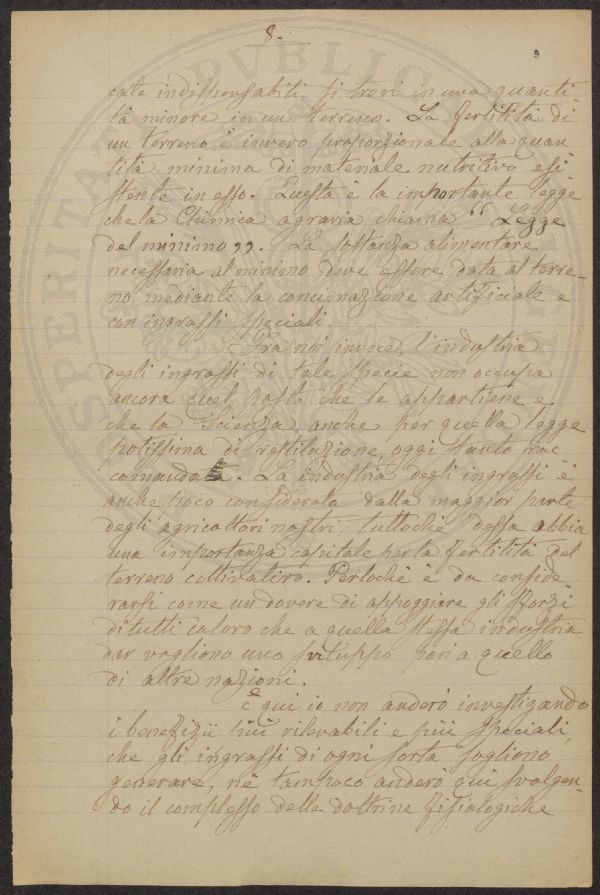 8.
9
cate indispensabili si trovi in una quanti-
tà minore in un terreno. La fertilità di
un terreno è invero proporzionale alla quan
tità minima di materiale nutritivo esi
stente in esso. Questa è la importante legge
che la Chimica agraria chiama “ Legge
del minimo ”. La sostanza alimentare
necessaria al minimo deve essere data al terre-
no mediante la concimazione artificiale e
con ingrassi speciali.
Fra noi invece, l'industria
degli ingrassi di tale specie non occupa
ancora quel posto che le appartiene e
che la Scienza, anche per quella legge
potissima di restituzione, oggi tanto rac
comanda. La industria degli ingrassi è
anche poco considerata dalla maggior parte
degli agricoltori nostri, tuttochè dessa abbia
una importanza capitale per la fertilità del
terreno coltivativo. Perlochè è da conside-
rarsi come un dovere di appoggiare gli sforzi
di tutti coloro che a quella stessa industria
dar vogliono uno sviluppo pari a quello
di altre nazioni.
E qui io non anderò investigando
i benefizii più rilevabili e più speciali,
che gli ingrassi di ogni sorta sogliono
generare, nè tampoco anderò qui svolgen-
do il complesso delle dottrine fisiologiche